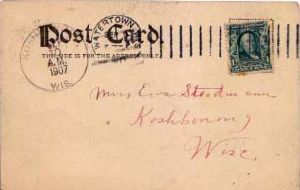 Post Card
THIS SIDE IS FOR THE ADDRESS ONLY
WATERTOWN
A.M.
1907
WIS.
Mrs Eva Steedman
Koshkonong
Wisc.